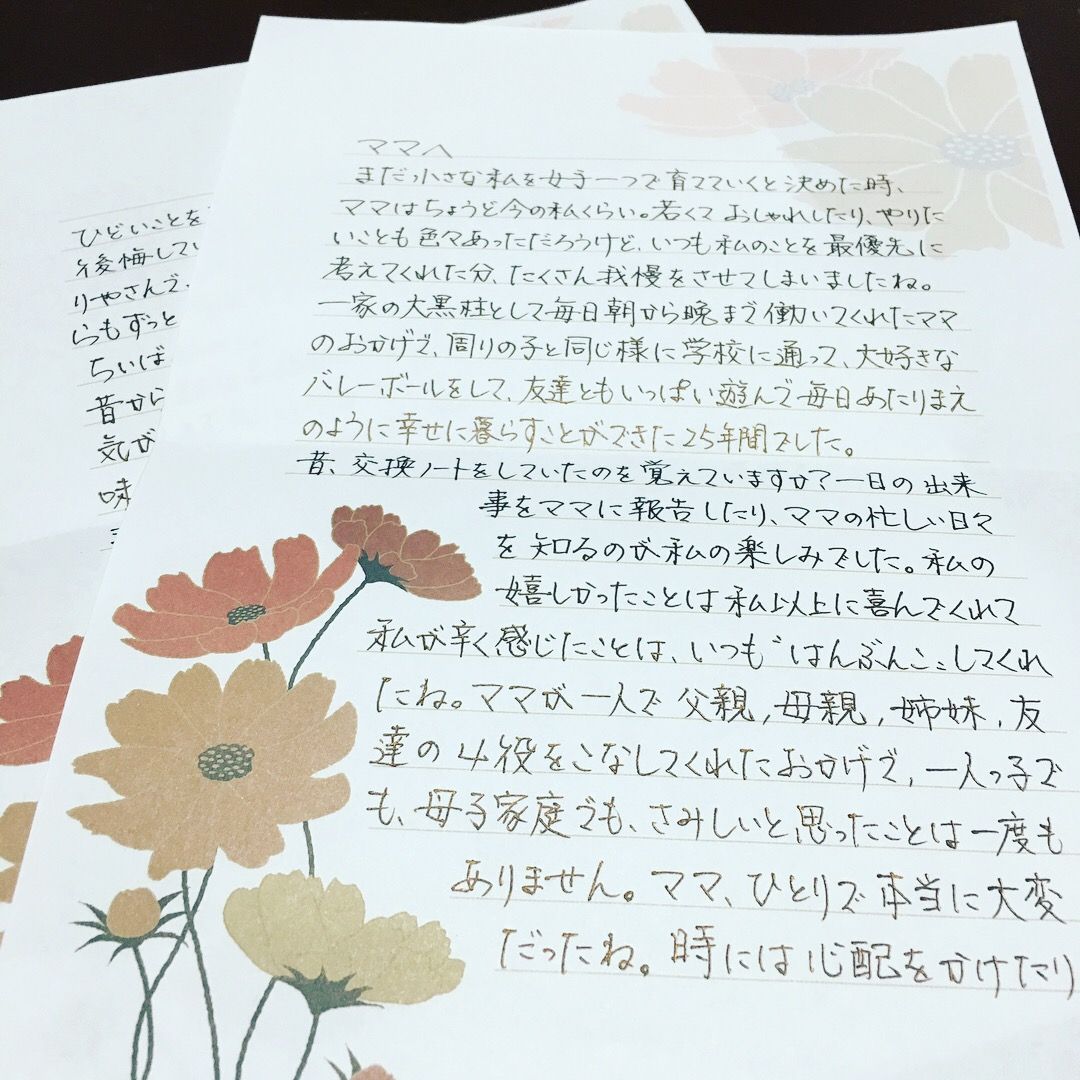 ママへ
まだ小さな私を女手一つで育てていくと決めた時、
ママはちょうど今の私くらい。若くて おしゃれしたり、やりた
いことも色々あっただろうけど、いつも私のことを最優先に
考えてくれた分、たくさん我慢をさせてしまいましたね。
一家の大黒柱として毎日朝から晩まで働いてくれたママ
のおかげで、周りの子と同じ様に学校に通って、大好きな
バレーボールをして、友達ともいっぱい遊んで毎日あたりまえ
のように幸せに暮らすことができた25年間でした。
昔、交換ノートをしていたのを覚えていますか?一日の出来
事をママに報告したり、ママの忙しい日々
を知るのが私の楽しみでした。私の
嬉しかったことは私以上に喜んでくれて
私が辛く感じたことは、いつも“はんぶんこ”してくれ
たね。ママが一人で父親,母親,姉妹,友
達の4役をこなしてくれたおかげで,一人っ子で
も、母子家庭でも、さみしいと思ったことは一度も
ありません。ママ、ひとりで本当に大変
だったね。時には心配をかけたり
ひどいことを
後悔してい
りやさんで、
らもずっと
ちいば
昔から
気が
味